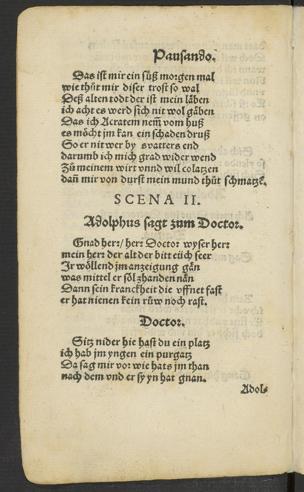 Pausando.
Das ist mir ein süß morgen mal
wie thůt mir diser trost so wal
Deß alten todt der ist mein läben
ich acht es werd sich nit wol gäben
Das ich Acratem nem̄ vom huß
es möcht jm kan ein schaden druß
So er nit wer by svatters end
darumb ich mich grad wider wend
Zů meinem wirt vnnd wil colatzen
dan̄ mir von durst mein mund thůt schmatzē.
SCENA II.
Adolphus sagt zum Doctor.
Gnad herr/ herr Doctor wyser herr
mein herr der alt der bitt eüch seer
Ir wöllend jm anzeigung gän
was mittel er söl zhanden nän
Dann sein kranckheit die vffnet fast
er hat nienen kein rüw noch rast.
Doctor.
Sitz nider hie hast du ein platz
ich hab jm yngen ein purgatz
Da sag mir vor wie hats jm than
nach dem vnd er sy yn hat gnan.
Adol-